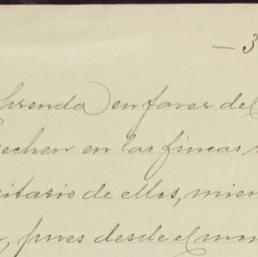 — 3
prenda) en favor del
echen en las fincas
sitario de ellos, mien
, pues desde el mom